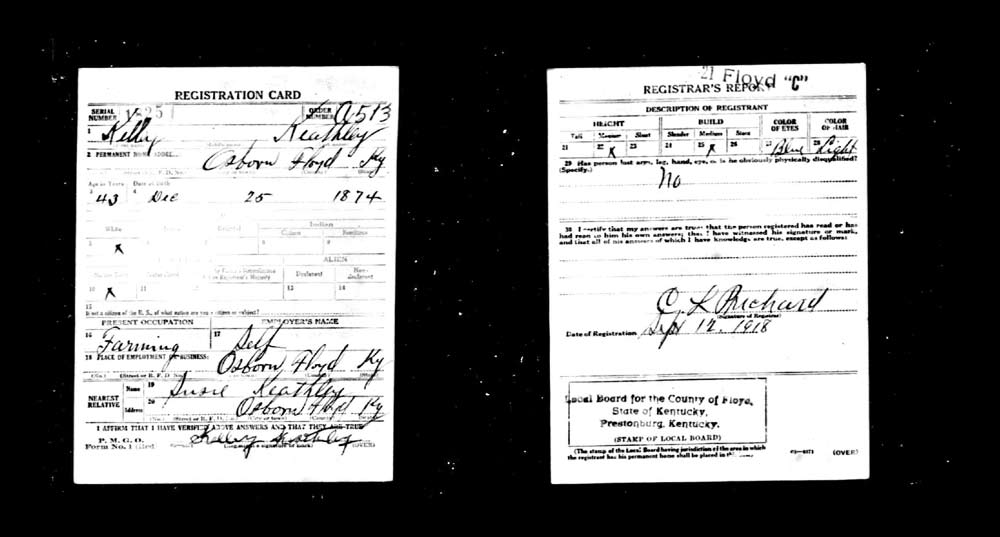 REGISTRATION CARD
SERIAL NUMBER
ORDER NUMBER A513
1 Kelly Keathley
2 PERMANENT HOME
Osborn Floyd Ky
Age in Years Date of Birth
3 43 4 Dec 25 1874
White Indian
Citizen
5 X 8 9
ALIEN
Declarant Non-declarant
10 X 11 12 13 14
15
If not a citizen of the U. S., of what nation are you a citizen or subject?
PRESENT OCCUPATION EMPLOYER'S NAME
16 Farming 17 Self
18 PLACE OF EMPLOYMENT OR BUSINESS:
Osborn Floyd Ky
NEAREST RELATIVE Name 19 Susie Keathley
Address 20 Osborn Floyd Ky
I AFFIRM THAT I HAVE VERIFIED ABOVE ANSWERS AND THAT THEY ARE TRUE
P. M. G. O.
Form No. 1 (Red) Kelly Keathley (OVER)
21 Floyd "C"
REGISTRAR'S REPORT
DESCRIPTION OF REGISTRANT
HEIGHT BUILD COLOR OF EYES COLOR OF HAIR
Tall Medium Short Slender Medium Stout
21 22 X 23 24 25 X 26 27 Blue 28 Light
29 Has person lost arm, leg, hand, eye, or is he obviously physically disqualified?
(Specify.) No
30 I certify that my answers are true; that the person registered has read or has
had read to him his own answers; that I have witnessed his signature or mark,
and that all of his answers of which I have knowledge are true, except as follows:
O L Prichard
(Signature of Registrar)
Date of Registration Sept 12, 1918
Local Board for the County of Floyd,
State of Kentucky,
Prestonburg, Kentucky.
(STAMP OF LOCAL BOARD)
(The stamp of the Local Board having jurisdiction of the area in which
the registrant has his permanent home shall be placed in
(OVER)